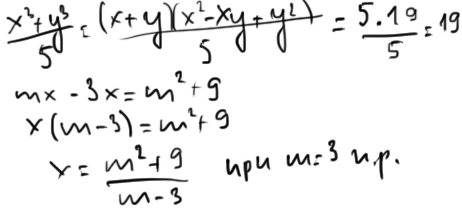 (x³+y³)/5 = (x+y)(x²-xy+y²)/5 = 5.19/5 = 19
mx - 3x = m²+9
x(m-3) = m²+9
x = (m²+9)/(m-3) при m=3 н.р.